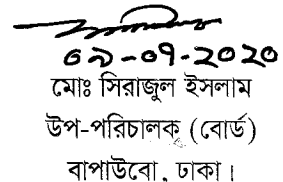 ০৯-০৭-২০২০
মোঃ সিরাজুল ইসলাম
উপ-পরিচালক (বোর্ড)
বাপাউবো, ঢাকা।